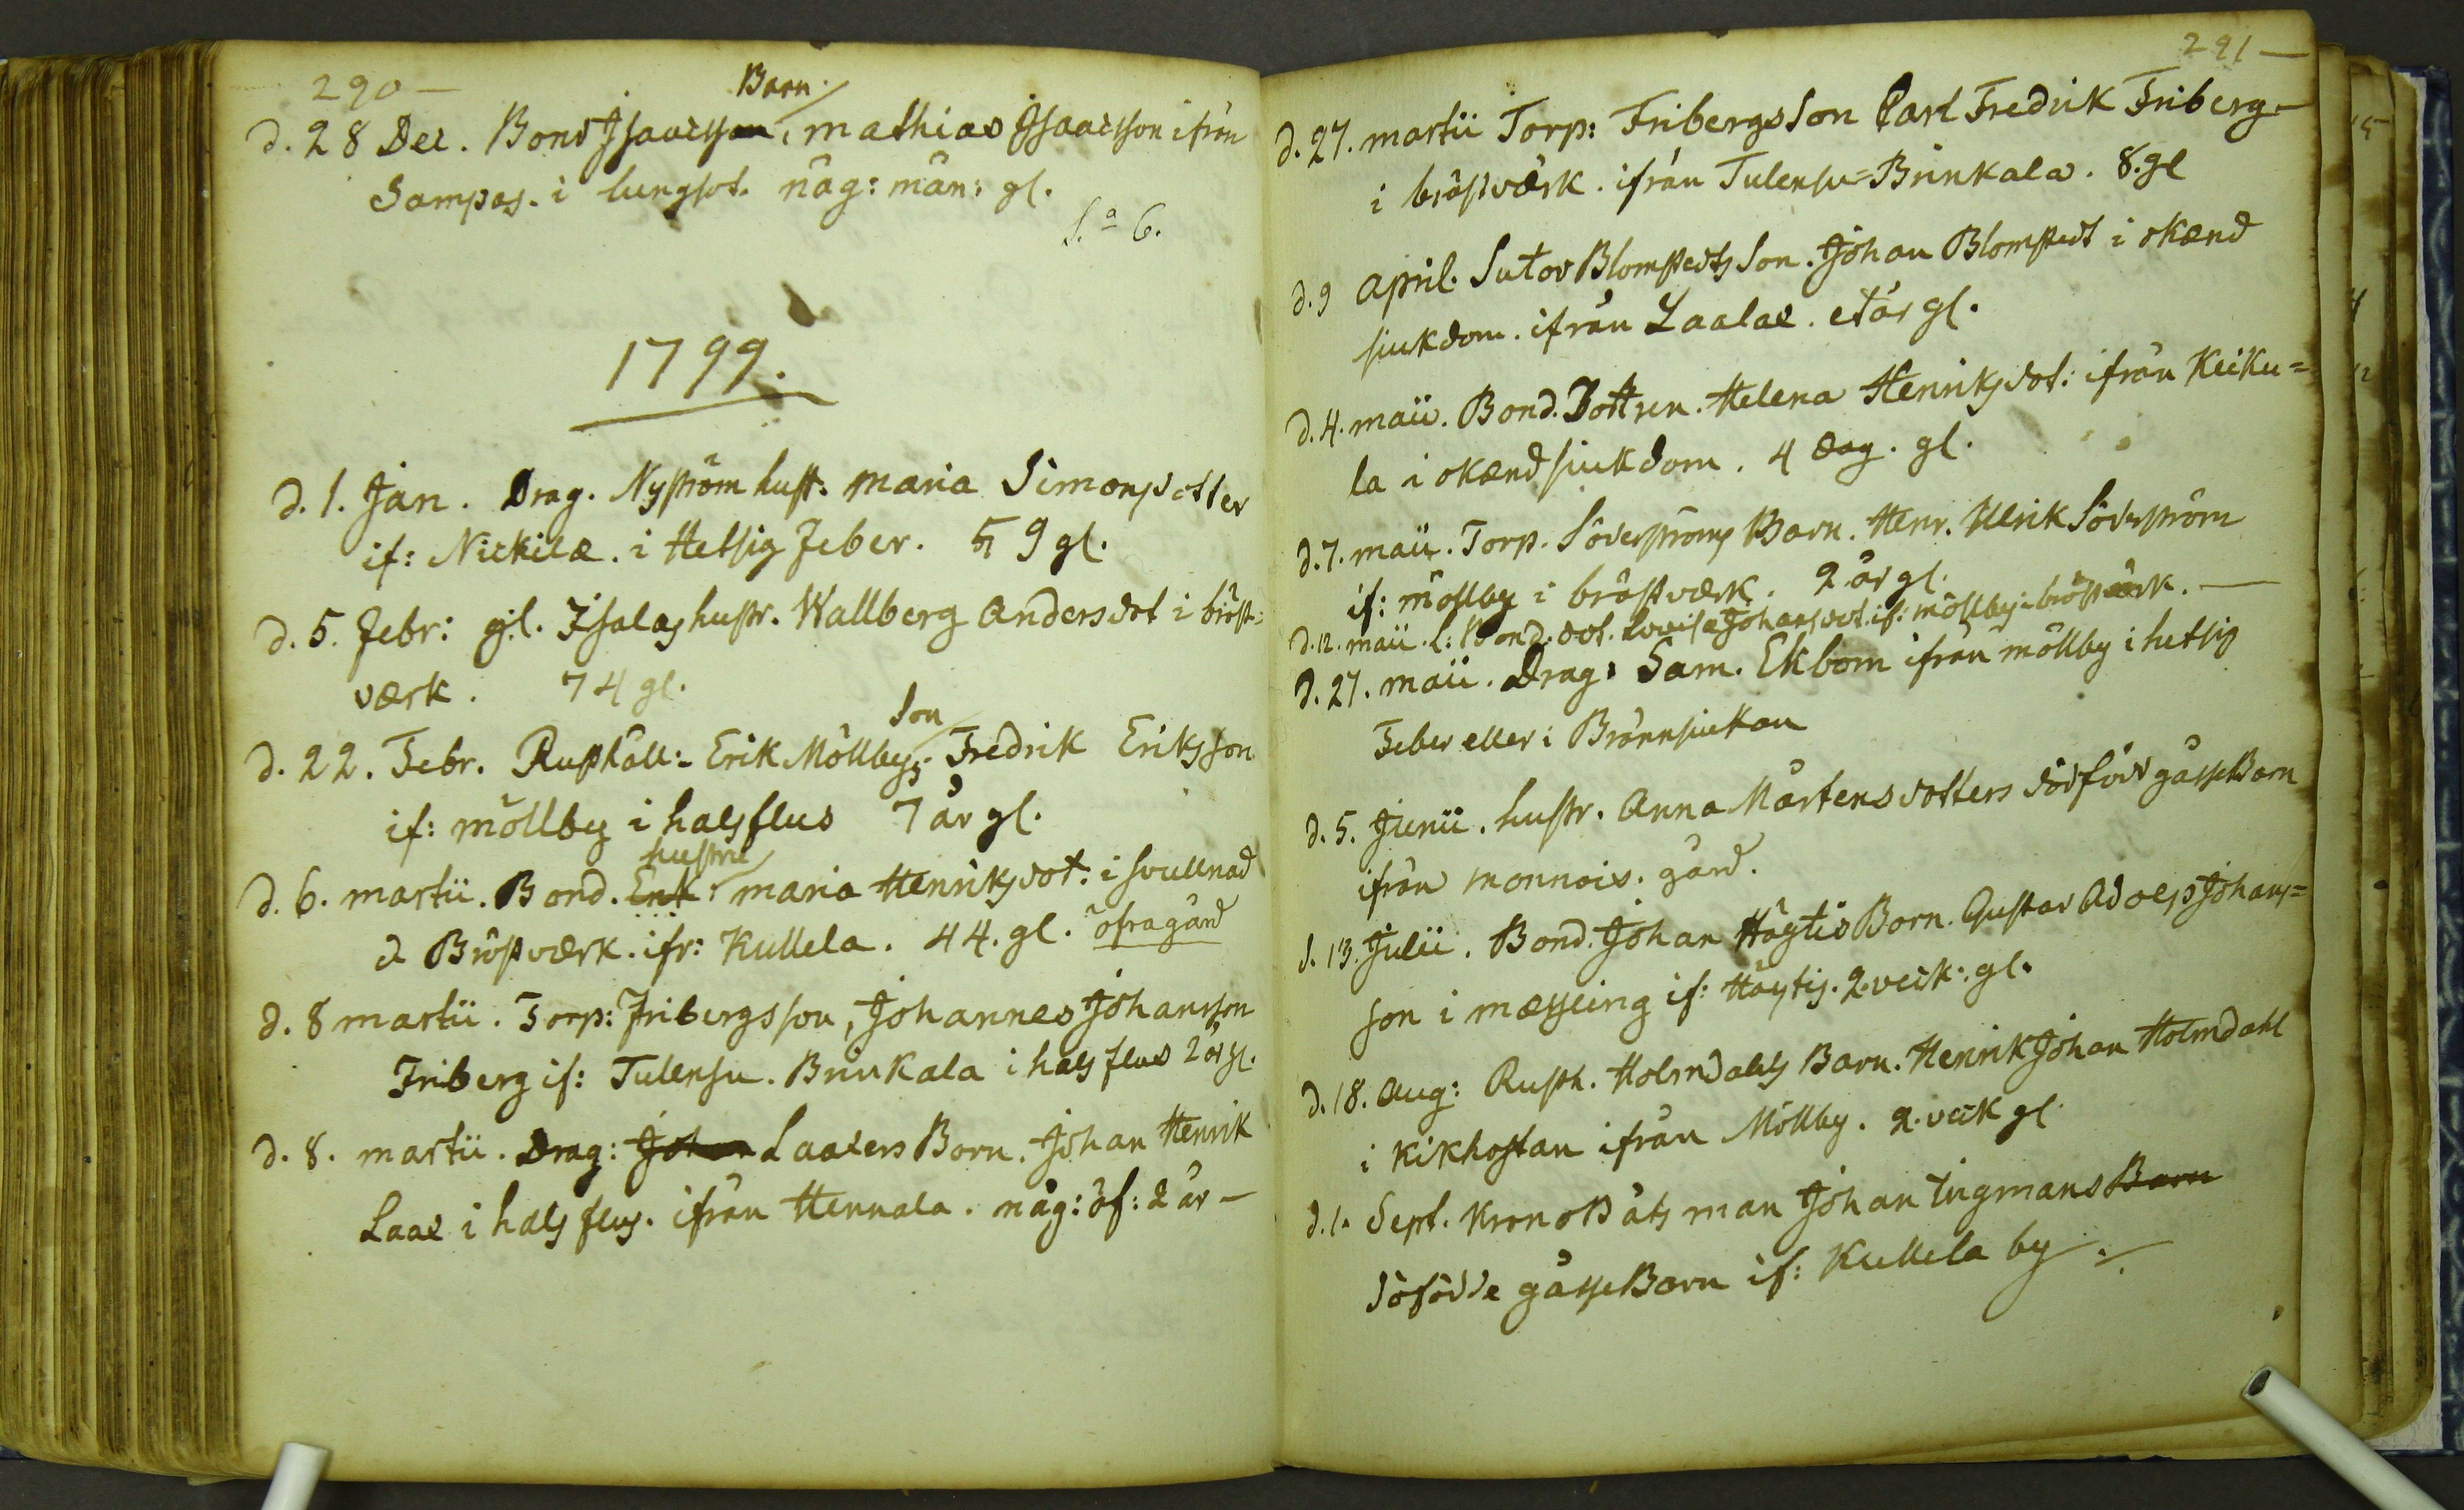 290 —
Barn
d. 28 Dec. Bond Isacsson, mathias Isaacsson ifrån
Sampas. i lungsot. någ: mån: gl.
S:a 6.
1799.
d. 1. Jan. Drag. Nyström hust. maria Simonsdotter
if: Nickilæ. i Hetsig Feber. 59 gl.
d. 5. Febr: gl. Isalas hustr. Wallberg Andersdot i bröst=
værk. 74 gl.
son
d. 22. Febr. Rusthåll: Erik Möllbys Fredrik Eriksson
if: möllby i halsflus 7 år gl.
hustru
d. 6. martii. Bond. Enk: maria Henriksdot: i svullnad
& Bröstværk. ifr: Kullela. 44. gl. öfragård
d. 8 martii. Torp: Fribergs son, Johannes Johansson
Friberg if: Tulensu. Brinkala i hals flus 2 år gl.
d. 8. martii. Drag: Johan Laaxers Barn. Johan Henrik
Laax i hals flus. ifrån Hennala. någ: öf: 2 år —
291 —
d. 27. martii Torp: Fribergs Son Carl Fredrik Friberg —
i bröstværk. ifrån Tulensu=Brinkala. 8. gl
d. 9 april. Sutor Blomstedts Son. Johan Blomstedt i okænd
siukdom. ifrån Laalax. et år gl.
d. 4. maii. Bond. Dottren. Helena Henriksdot: ifrån Keiku=
la i okænd siukdom. 4 dag. gl.
d. 7. maii. Torp. Söderströms Barn. Henr. Ulrik Söderström
if: möllby i bröstværk. 2 år gl.
d. 12. maii. l: Bond. dot. Lovisa Johansdot. if: möllby i bröstværk. —
d. 27. maii. Drag: Sam. Ekbom ifrån möllby i hetsig
Feber eller i Brännsiukan
d. 5. Junii. hustr. Anna Mårtensdotters dödföd gåsseBarn
ifrån monnois. gård.
d. 13. Julii. Bond. Johan Höytis Barn. Gustav Adolf Johans=
son i mæssling if: Höytis. 2. veck: gl.
d. 18. Aug: Rusth. Holmdahls Barn. Henrik Johan Holmdahl
i Kikhostan ifrån Möllby. 2. veck gl
d. 1. Sept. KronoBåtsman Johan Tirgmans Barn
döfödde gåsseBarn if: Kullela by. —